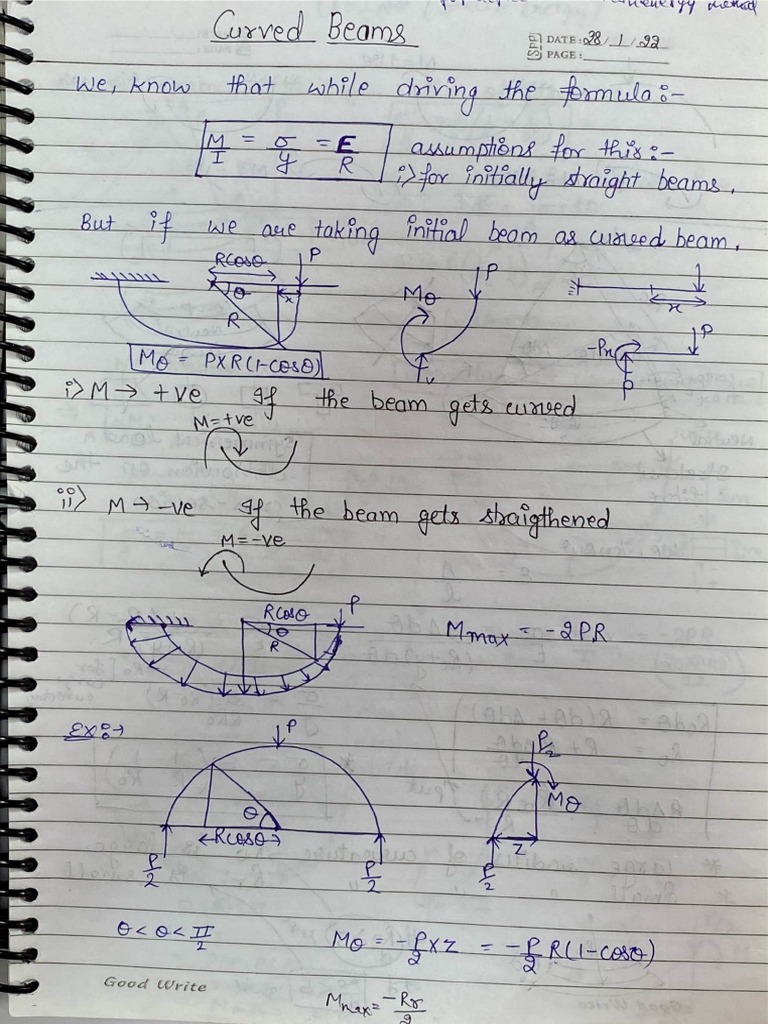 energy method
Curved Beams
SPP DATE: 28/1/22
PAGE:
We, know that while driving the formula:-
M/I = σ/y = E/R assumptions for this:-
i) for initially straight beams.
But if we are taking initial beam as curved beam.
Rcosθ P
θ x
R
Mθ P
x
-Px P
P
Mθ = P×R(1-cosθ)
i) M → +ve If the beam gets curved
M=+ve
ii) M → -ve If the beam gets straigthened
M=-ve
Rcosθ P
θ
R
Mmax = -2PR
Ex:→
P
P/2
Mθ
θ
Rcosθ
z
P/2 P/2 P/2
θ < θ < π/2 Mθ = -P/2 × z = -P/2 R(1-cosθ)
Good Write